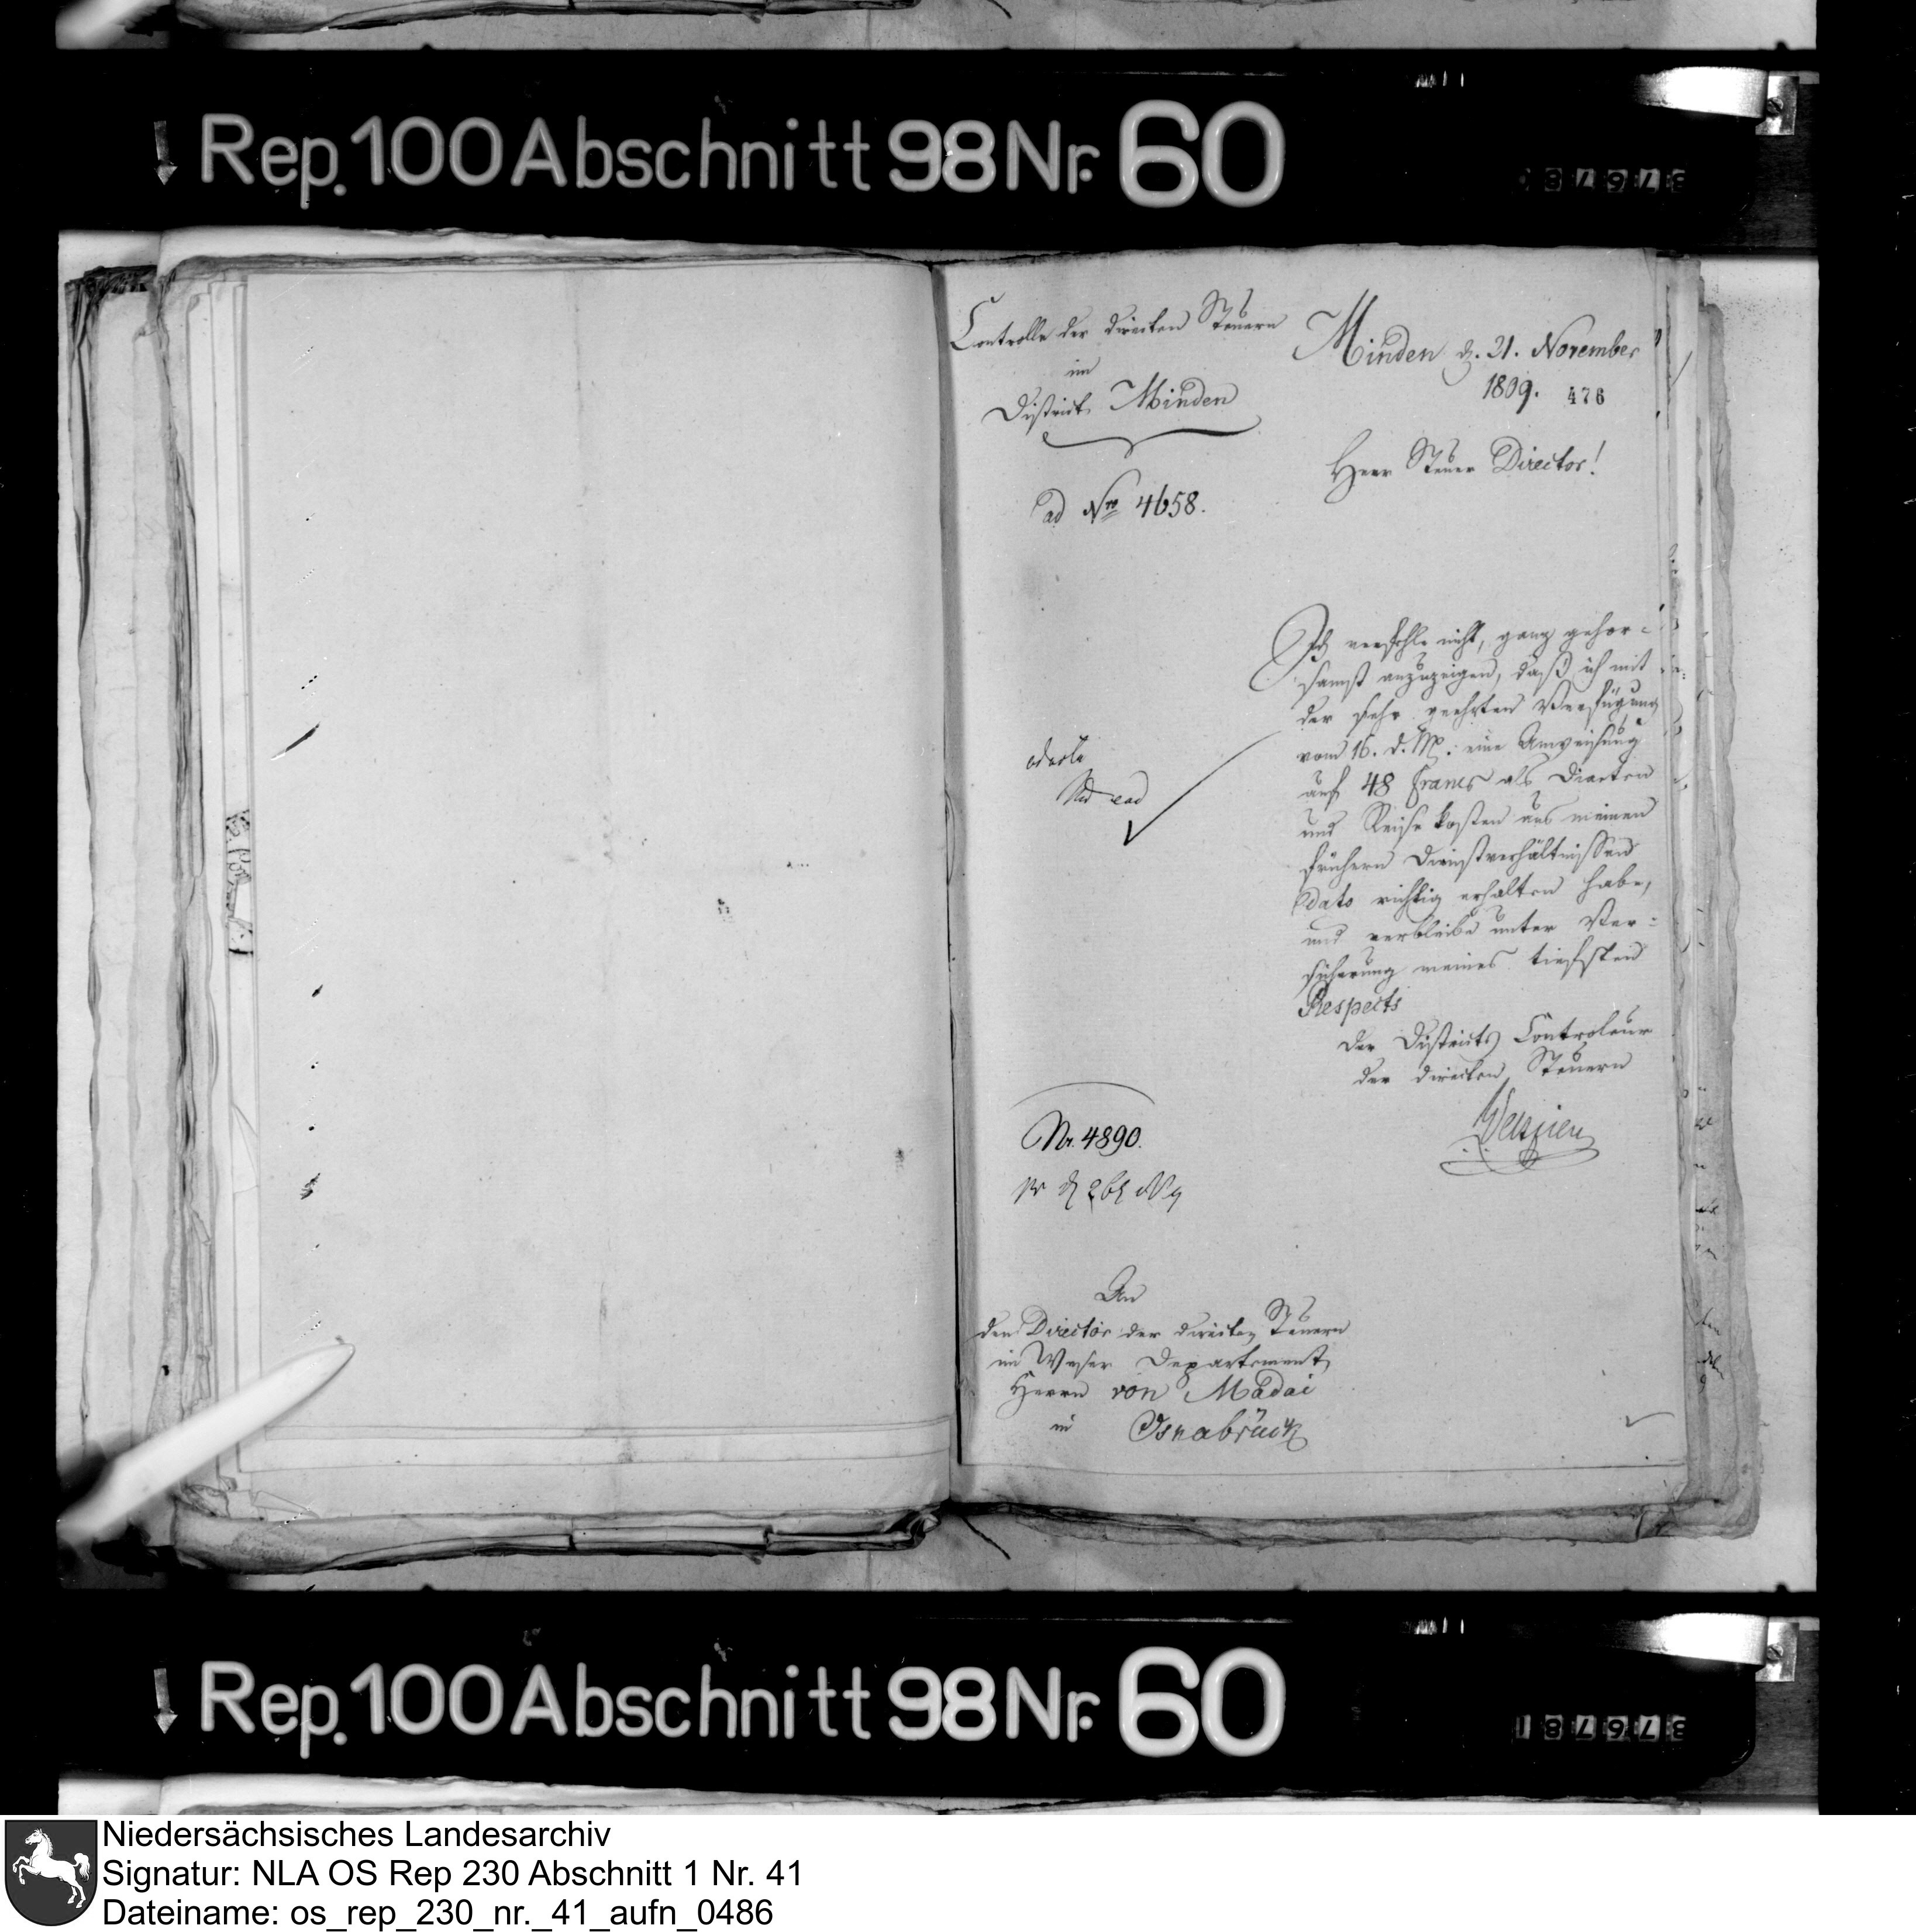 Rep. 100 Abschnitt 98 Nr. 60
Controlle der directen Steuern
im
District Minden
ad Nro 4658.
Minden d. 21. November
1809. 476
Herr Steuer Director!
Ich verfehle nicht, ganz gehor-
samst anzuzeigen, daß ich mit
der sehr geehrten Verfügung
vom 16. d. M. eine Anweisung
auf 48 Francs als Diaeten
und Reise kosten aus meinen
frühern Dienstverhältnissen
dato richtig erhalten habe,
und verbleibe unter Ver-
sicherung meines tiefsten
Respects
der Districts Controleur
der directen Steuern
Nr. 4890.
An
den Director der directen Steuern
im Weser Departement
Herrn von Madai
in Osnabrück
Rep. 100 Abschnitt 98 Nr. 60
376781
Niedersächsisches Landesarchiv
Signatur: NLA OS Rep 230 Abschnitt 1 Nr. 41
Dateiname: os_rep_230_nr._41_aufn_0486